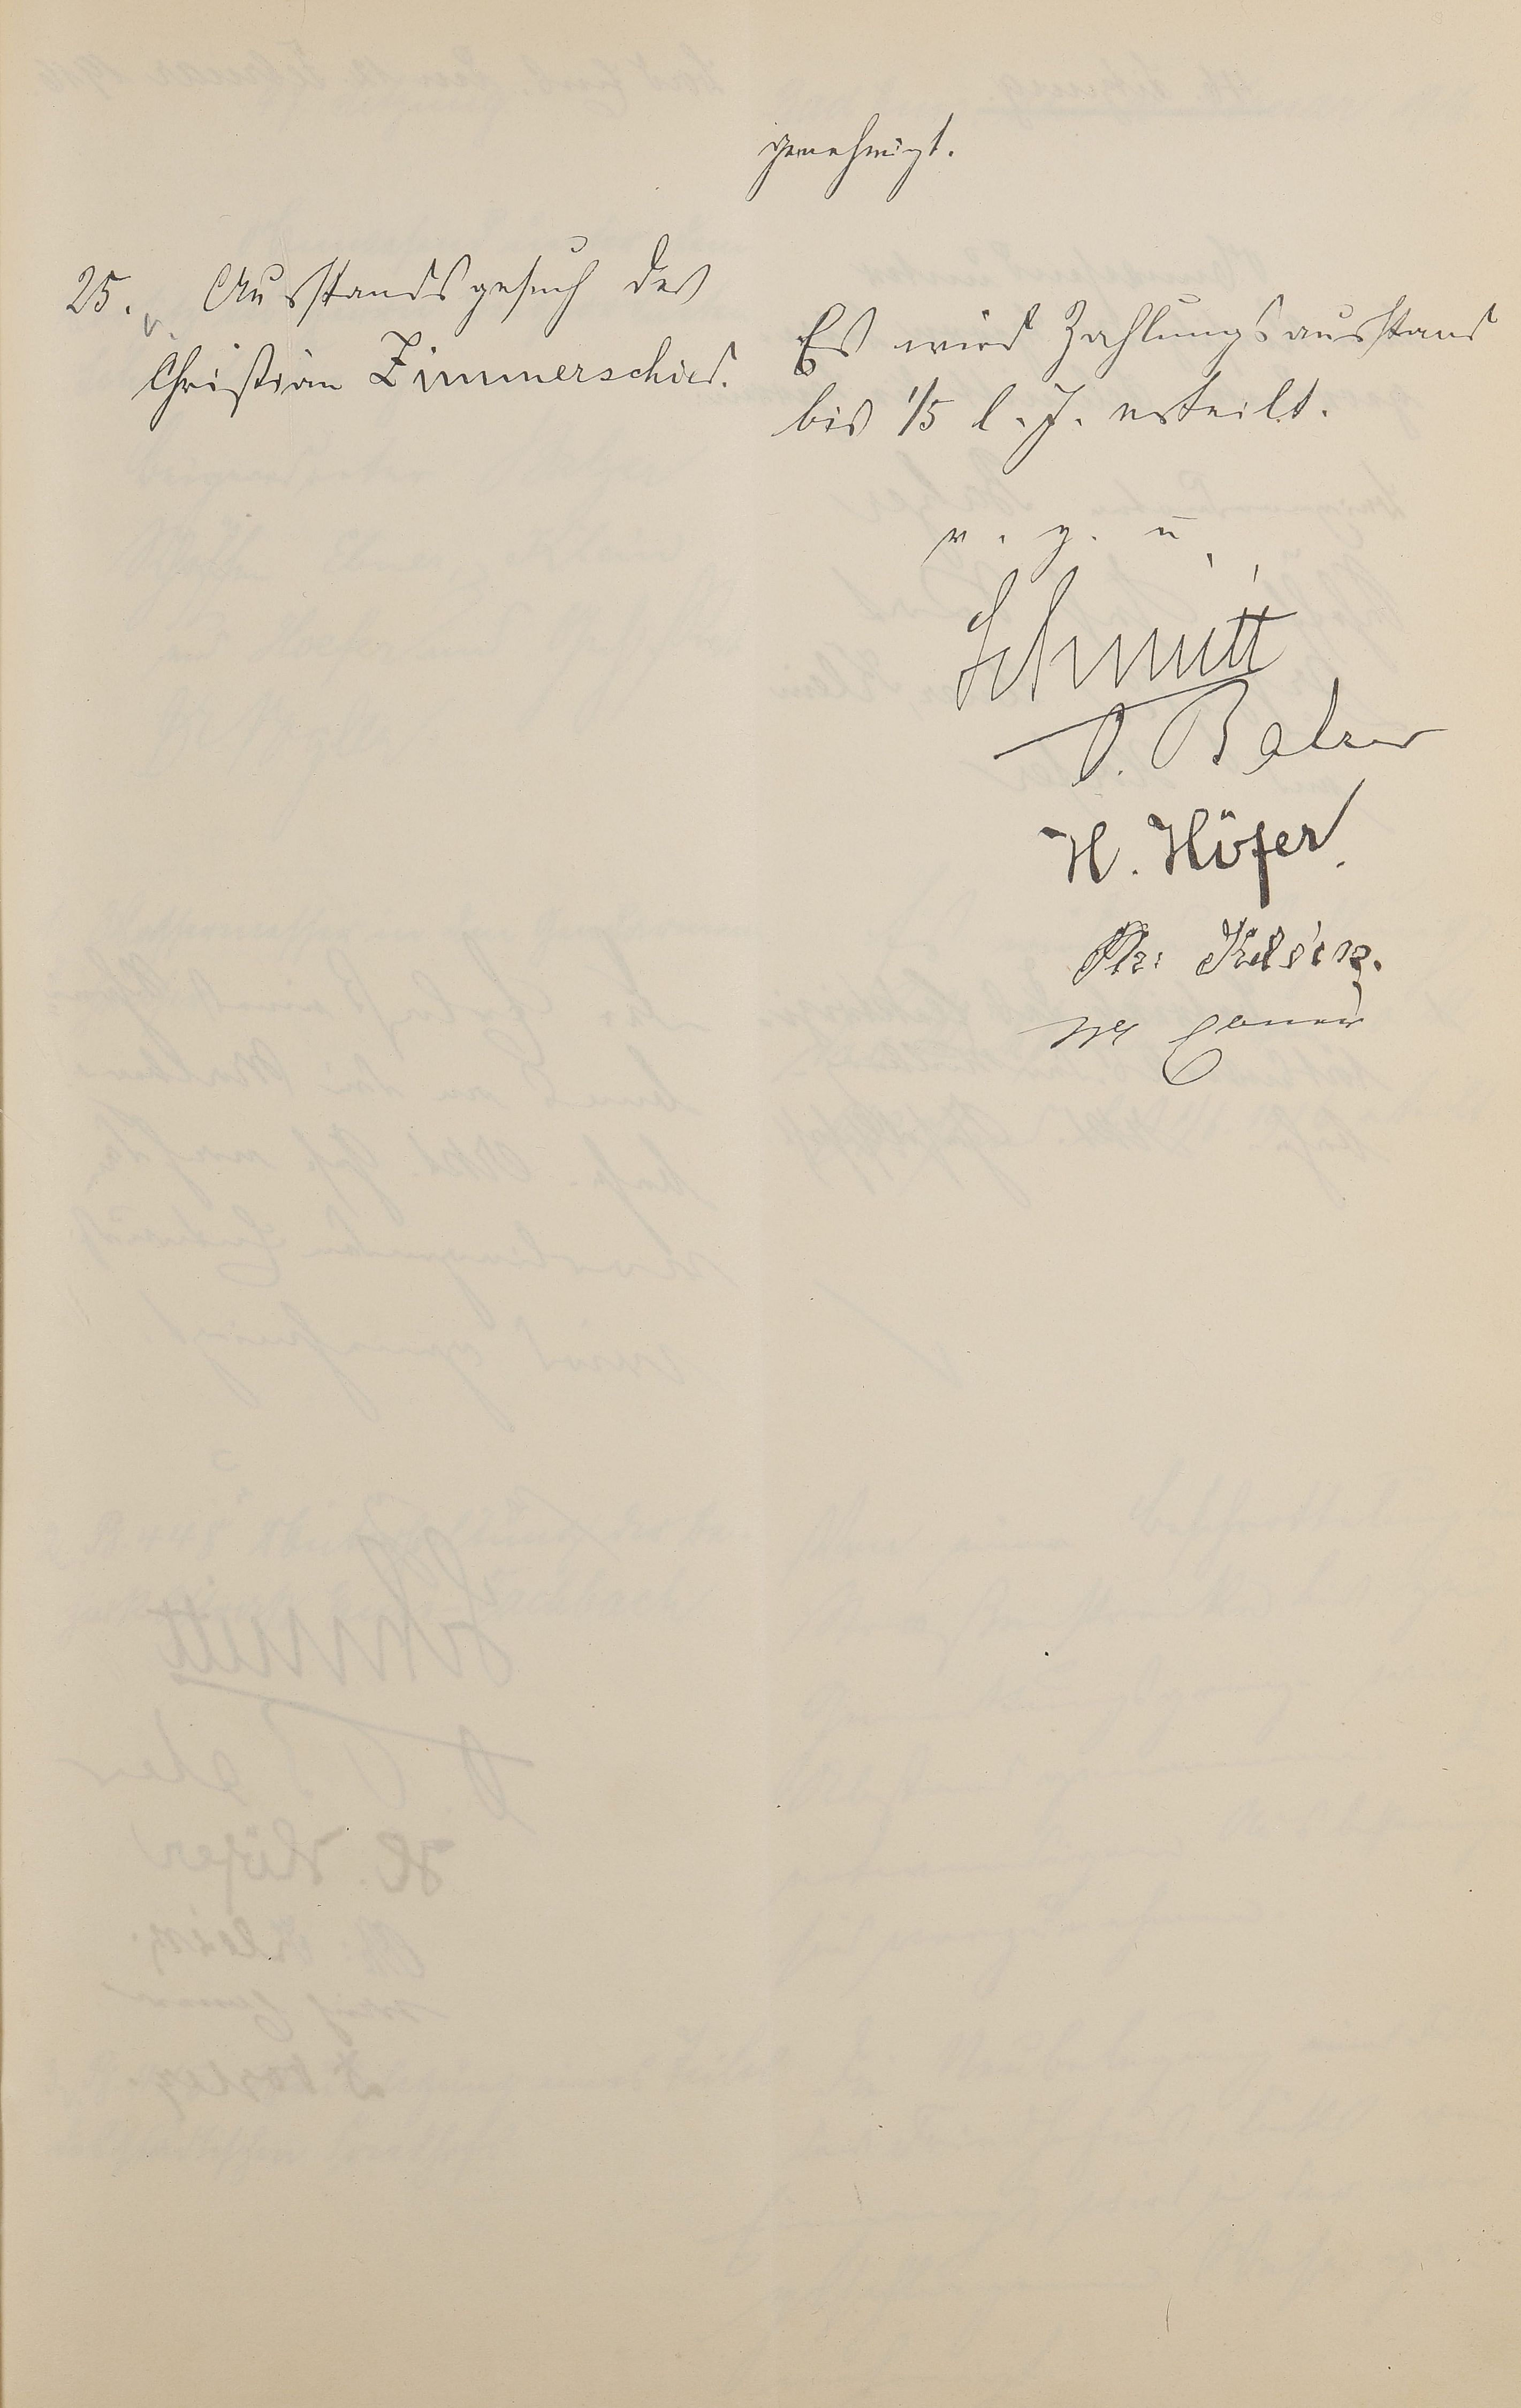 genehmigt.
25. Ausstandsgesuch des
Christian Zimmerschied.
Es wird Zahlungsausstand
bis 1/5 l. J. erteilt.
v. g. u.
Schmitt
Balzer
H. Höfer.
Klein.